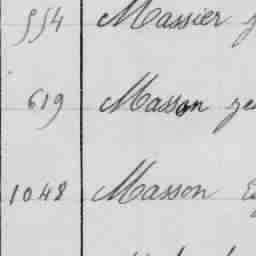 554 Massier
619 Masson
1048 Masson